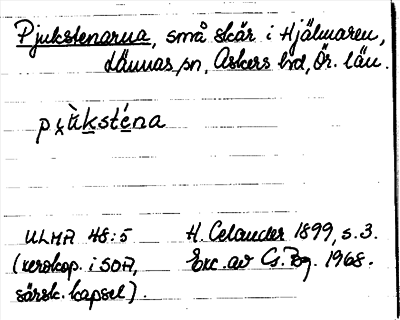 Pjukstenarna, små skär i Hjälmaren,
Lännäs sn, Askers hd, Ör. län.
pχùksténa
ULMA 48:5 H. Celander 1899, s. 3.
(xerokop. i SOA, Exc. av Cs. Bg. 1968.
särsk. kapsel).